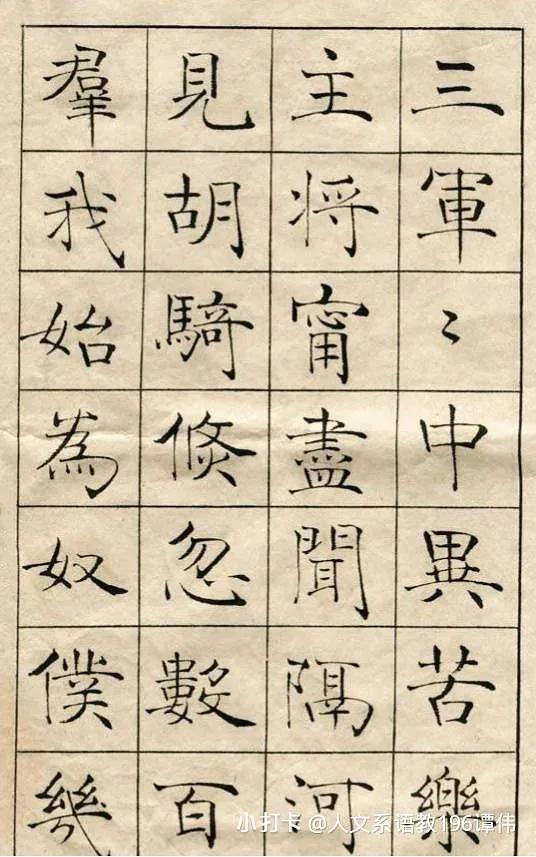 三軍〻中異苦樂
主將甯盡聞隔河
見胡騎倐忽數百
羣我始為奴僕幾
小打卡 @人文系语教196谭伟